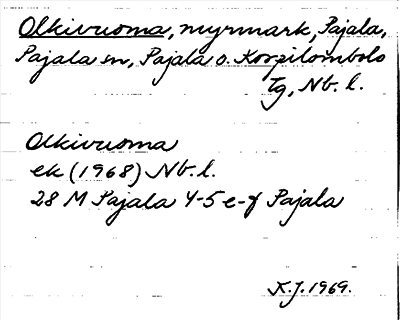 Olkivuoma, myrmark, Pajala,
Pajala sn, Pajala o. Korpilombolo
tg, Nb. l.
Olkivuoma
ek (1968) Nb. l.
28 M Pajala 4-5 e-f Pajala
K.J. 1969.